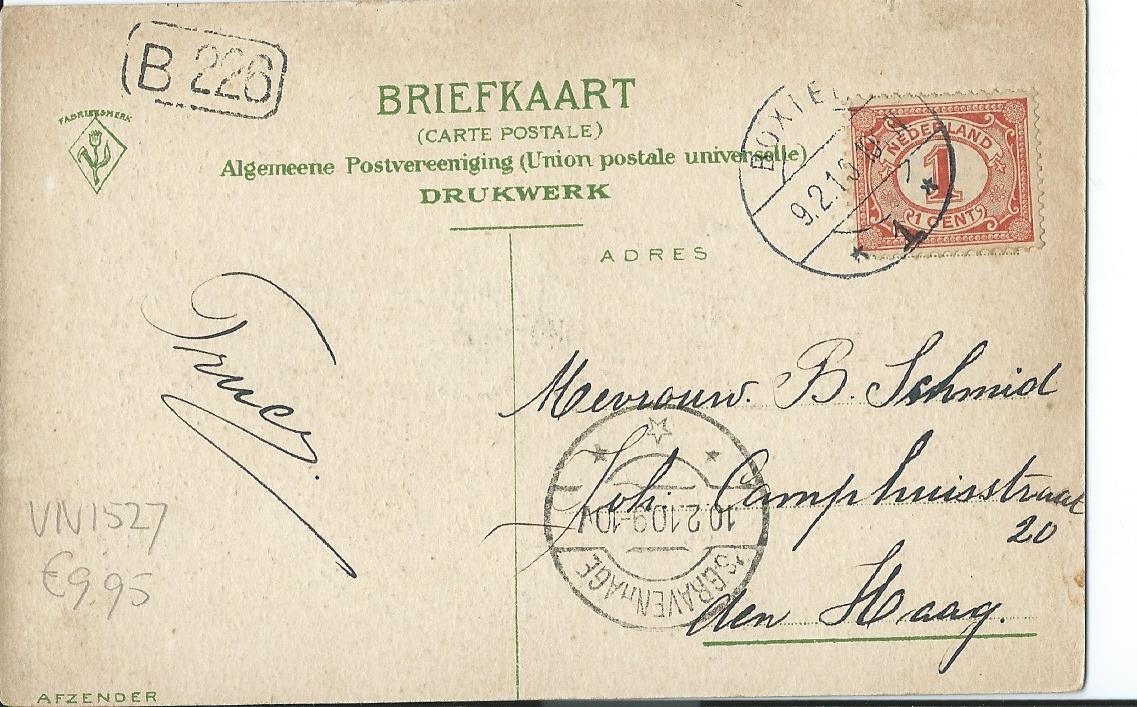 B 226
FABRIEKSMERK
BRIEFKAART
(CARTE POSTALE)
Algemeene Postvereeniging (Union postale universelle)
DRUKWERK
BOXTEL
9.2.10
1
NEDERLAND
1
1 CENT
ADRES
Truce.
Mevrouw. B. Schmid
Joh. Camphuisstraat
20
den Haag.
10.2.10 9-10V
'SGRAVENHAGE
VN1527
€9.95
AFZENDER